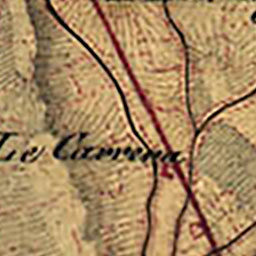 Le Carrera